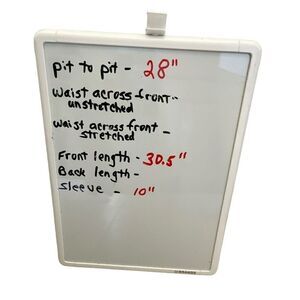 pit to pit - 28"
waist across front -
unstretched
waist across front -
stretched
Front length - 30.5"
Back length -
sleeve - 10"